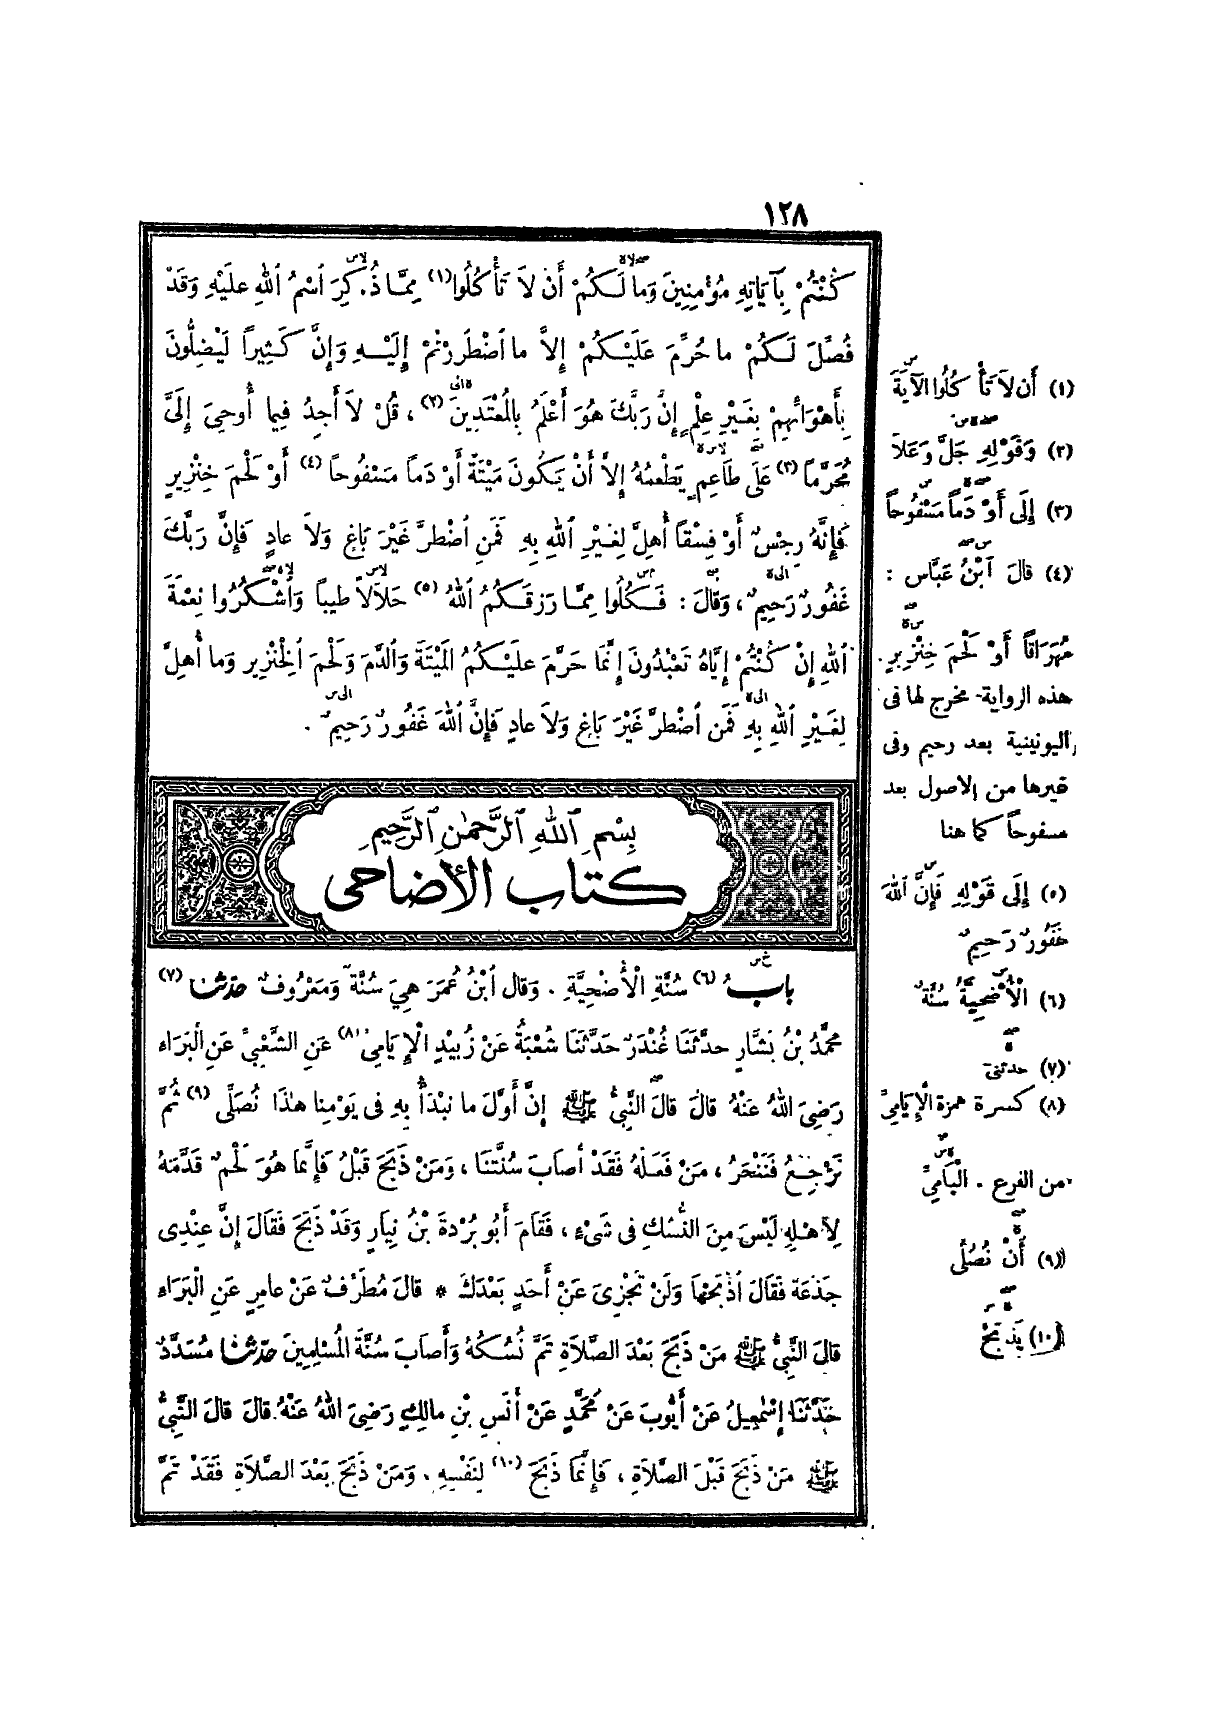 ١٢٨
كُنْتُمْ بِآيَاتِهِ مُؤْمِنِينَ وَما لَكُمْ أَنْ لاَ تَأْكُلُوا (١) مِمَّا ذُكِرَ اسْمُ اللهِ علَيْهِ وَقَدْ
فُصِّلَ لَكُمْ ما حُرِّمَ عَلَيْكُمْ إِلاَّ ما اضْطُرِرْتُمْ إِلَيْهِ وَإِنَّ كَثِيراً لَيُضِلُّونَ
بِأَهْوَائِهِمْ بِغَيْرِ عِلْمٍ إِنَّ رَبَّكَ هُوَ أَعْلَمُ بِالْمُعْتَدِينَ (٢) ، قُلْ لاَ أَجِدُ فِيما أُوحِيَ إِلَىَّ
مُحَرَّماً (٣) عَلَى طَاعِمٍ يَطْعَمُهُ إِلاَّ أَنْ يَكُونَ مَيْتَةً أَوْ دَماً مَسْفُوحاً (٤) أَوْ لَحْمَ خِنْزِيرٍ
فَإِنَّهُ رِجْسٌ أَوْ فِسْقاً أُهِلَّ لِغَيْرِ اللهِ بِهِ فَمَنِ اضْطُرَّ غَيْرَ بَاغٍ وَلاَ عادٍ فَإِنَّ رَبَّكَ
غَفُورٌ رَحِيمٌ ، وَقالَ : فَكُلُوا مِمَّا رَزَقَكُمُ اللهُ (٥) حَلاَلاً طَيباً وَاشْكُرُوا نِعْمَةَ
اللهِ إِنْ كُنْتُمْ إِيَّاهُ تَعْبُدُونَ إِنَّمَا حَرَّمَ علَيْكُمُ المَيْتَةَ وَالدَّمَ وَلَحْمَ الْخِنْزِيرِ وَما أُهِلَّ
لِغَيْرِ اللهِ بِهِ فَمَنِ اضْطُرَّ غَيْرَ بَاغٍ وَلاَ عادٍ فَإِنَّ اللهَ غَفُورٌ رَحِيمٌ .
بِسْمِ اللهِ الرَّحْمٰنِ الرَّحِيمِ
كتاب الأضاحى
بابُ (٦) سُنَّةِ الْأُضْحِيَّةِ . وَقال ابْنُ عُمَرَ هِيَ سُنَّةٌ وَمَعْرُوفٌ حدثنا (٧)
مُحَمَّدُ بْنُ بَشَّارٍ حدَّثَنَا غُنْدَرٌ حَدَّثَنَا شُعْبَةُ عَنْ زُبَيْدٍ الْإِيَامِيِّ (٨) عَنِ الشَّعْبِيِّ عَنِ الْبَرَاءِ
رَضِيَ اللهُ عَنْهُ قالَ قالَ النَّبِيُّ ﷺ إِنَّ أَوَّلَ ما نَبْدَأُ بِهِ فِى يَوْمِنا هٰذَا نُصَلِّى (٩) ثُمَّ
نَرْجِعُ فَنَنْحَرُ ، مَنْ فَعَلَهُ فَقَدْ أَصابَ سُنَّتَنَا ، وَمَنْ ذَبَحَ قَبْلُ فَإِنَّمَا هُوَ لَحْمٌ قَدَّمَهُ
لِأَهْلِهِ لَيْسَ مِنَ النُّسُكِ فِى شَىْءٍ ، فَقَامَ أَبُو بُرْدَةَ بْنُ نِيَارٍ وَقَدْ ذَبَحَ فَقَالَ إِنَّ عِنْدِى
جَذَعَة فَقَالَ اذْبَحْهَا وَلَنْ تَجْزِىَ عَنْ أَحَدٍ بَعْدَكَ * قالَ مُطَرِّفٌ عَنْ عامِرٍ عَنِ الْبَرَاءِ
قالَ النَّبِيُّ ﷺ مَنْ ذَبَحَ بَعْدَ الصَّلاَةِ تَمَّ نُسُكُهُ وَأَصَابَ سُنَّةَ الْمُسْلِمِينَ حدثنا مُسَدَّدٌ
حَدَّثَنَا إِسْمٰعِيلُ عَنْ أَيُّوبَ عَنْ مُحَمَّدٍ عَنْ أَنَسِ بْنِ مالِكٍ رَضِيَ اللهُ عَنْهُ قالَ قالَ النَّبِيُّ
ﷺ مَنْ ذَبَحَ قَبْلَ الصَّلاَةِ ، فَإِنَّمَا ذَبَحَ (١٠) لِنَفْسِهِ ، وَمَنْ ذَبَحَ بَعْدَ الصَّلاَةِ فَقَدْ تَمَّ
(١) أَن لاَ تَأْكُلُوا الآيَةَ
(٢) وَقَوْلِهِ جَلَّ وَعَلاَ
(٣) إِلَى أَوْ دَماً مَسْفُوحاً
(٤) قالَ ابْنُ عَبَّاسٍ :
مُهَرَاقاً أَوْ لَحْمَ خِنْزِيرٍ .
هذه الرواية مخرج لها فى
اليونينية بعد رحيم وفى
غيرها من الاصول بعد
مسفوحاً كما هنا
(٥) إِلَى قَوْلِهِ فَإِنَّ اللهَ
غَفُورٌ رَحِيمٌ
(٦) الْأُضْحِيَّةُ سُنَّةٌ
(٧) حدثنى
(٨) كسرة همزة الْإِيَامِيِّ
من الفرع . الْيَامِيِّ
(٩) أَنْ نُصَلِّى
(١٠) يَذْبَحُ